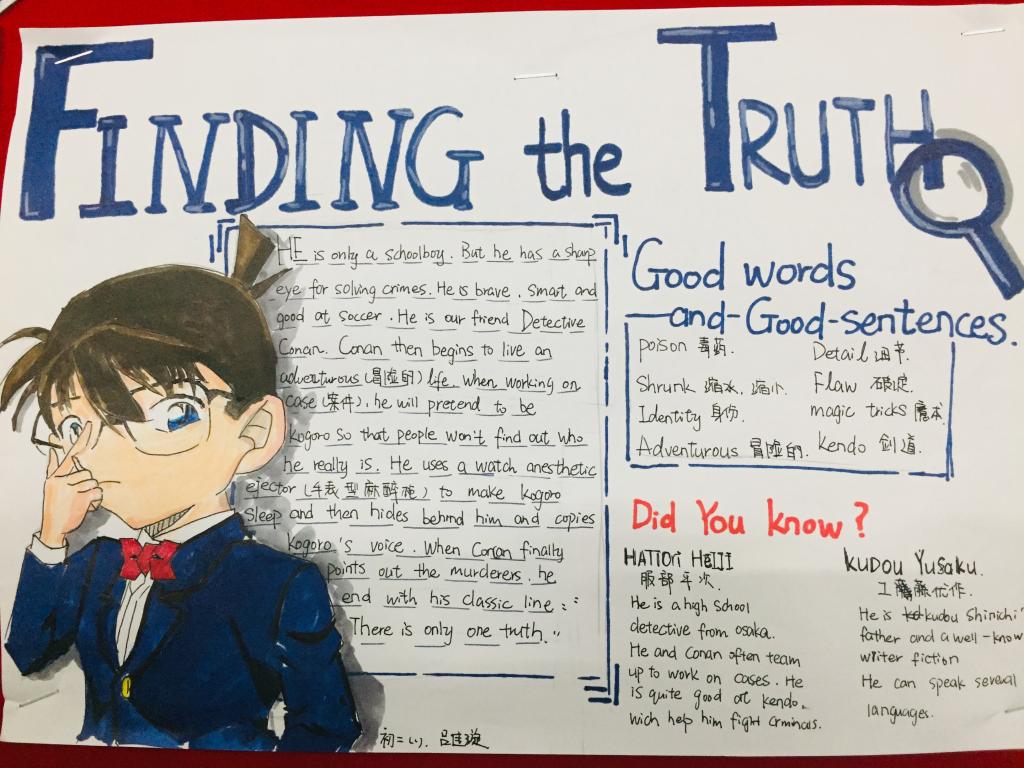 FINDING the TRUTH
HE is only a schoolboy. But he has a sharp
eye for solving crimes. He is brave, smart and
good at soccer. He is our friend Detective
Conan. Conan then begins to live an
adventurous (冒险的) life. when working on
case (案件). he will pretend to be
kogoro So that people won't find out who
he really is. He uses a watch anesthetic
ejector (手表型麻醉枪) to make kogoro
Sleep and then hides behind him and copies
kogoro's voice. When Conan finally
points out the murderers. he
end with his classic line:"
There is only one truth."
初二(1). 吕佳璇
Good words
and-Good-sentences.
poison 毒药.
Detail 细节.
Shrunk 缩水, 缩小.
Flaw 破绽.
Identity 身份
magic tricks 魔术.
Adventurous 冒险的.
kendo 剑道.
Did You know?
HATTORI HEIJI
服部平次.
He is a high School
detective from osaka.
He and Conan often team
up to work on cases. He
is quite good at kendo.
wich help him fight crminals.
KUDOU YUSAKU.
工藤优作.
He is kudou Shinichi'
father and a well-know
writer fiction
He can speak several
languages.